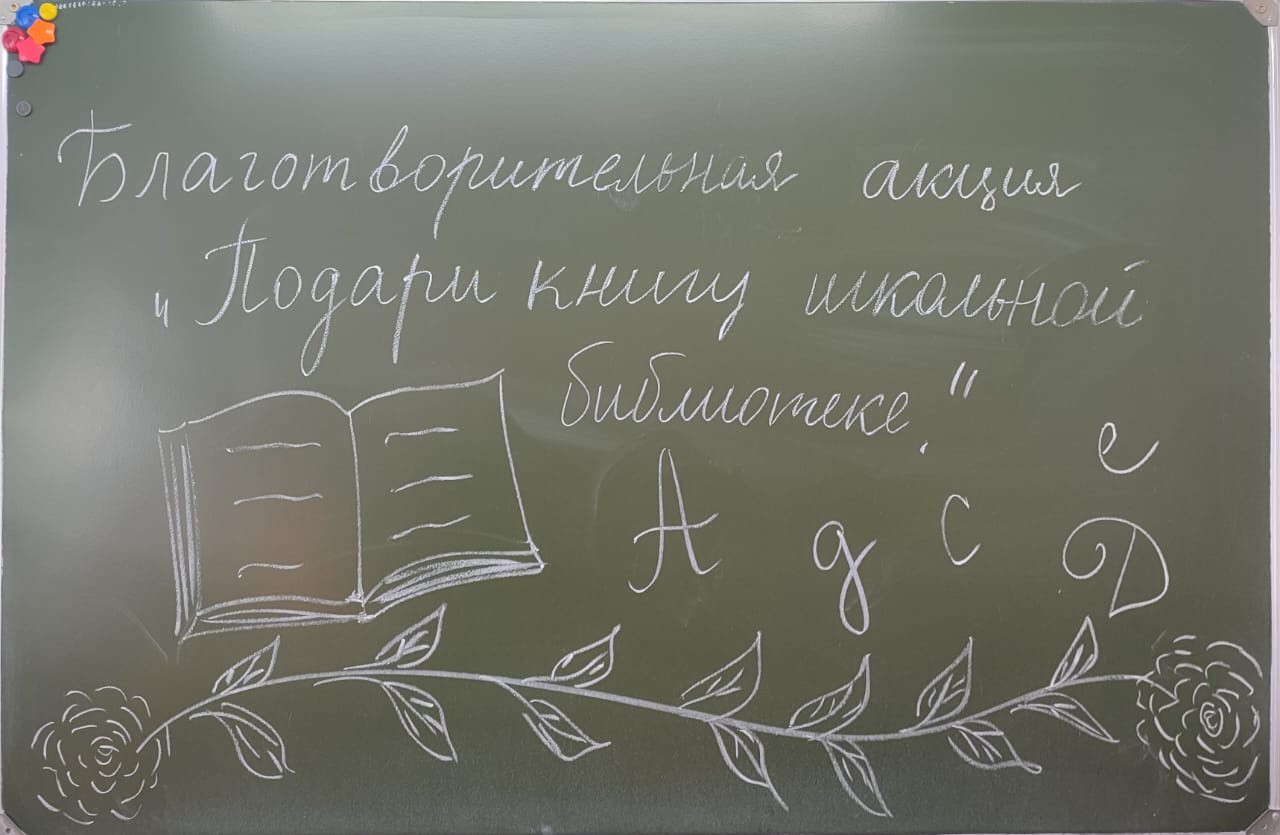 Благотворительная акция
„Подари книгу школьной
библиотеке."
е
А д с D